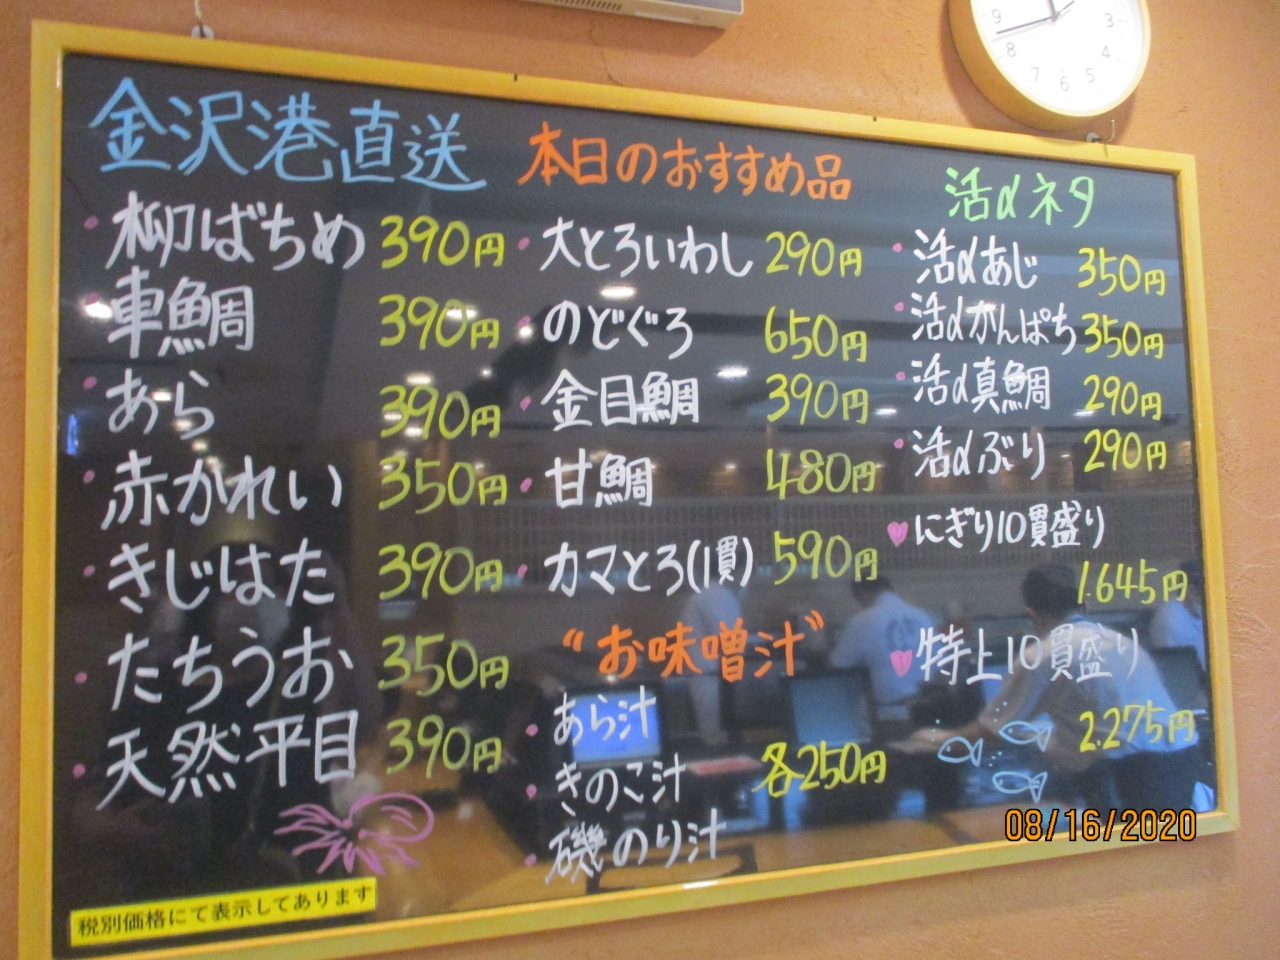 金沢港直送
・柳ばちめ 390円
・車鯛 390円
・あら 390円
・赤かれい 350円
・きじはた 390円
・たちうお 350円
・天然平目 390円
税別価格にて表示してあります
本日のおすすめ品
・大とろいわし 290円
・のどぐろ 650円
・金目鯛 390円
・甘鯛 480円
・カマとろ(1貫) 590円
“お味噌汁”
・あら汁
・きのこ汁 各250円
・磯のり汁
活〆ネタ
・活〆あじ 350円
・活〆かんぱち 350円
・活〆真鯛 290円
・活〆ぶり 290円
にぎり10貫盛り
1.645円
特上10貫盛り
2.275円
9 8 7 6 5 4 3
08/16/2020